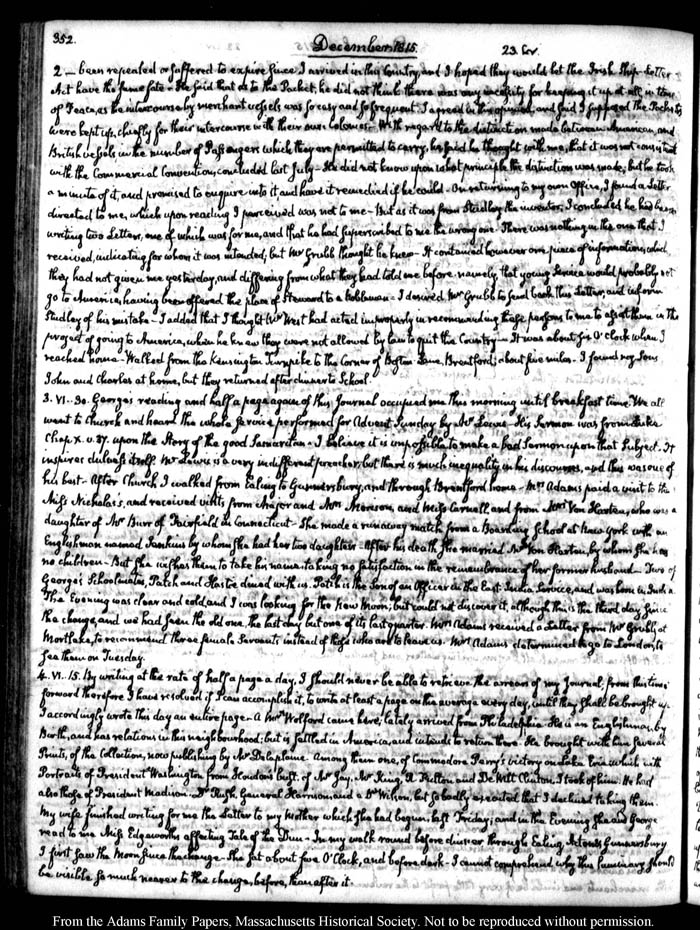 352.
December. 1815.
2 — been repealed or suffered to expire since I arrived in this Country, and I hoped they would let the Irish Ship-Letter
Act have the same fate — He said that as to the Packet, he did not think there was any necessity for keeping it up at all, in time
of Peace, as the intercourse by merchant vessels was so easy and so frequent. I agreed in this opinion, and said I supposed the Packets
were kept up, chiefly for their intercourse with their own Colonies — With regard to the distinction made between American, and
British vessels in the number of Passengers which they are permitted to carry, he said he thought with me, that it was not consistent
with the Commercial Convention, concluded last July — He did not know upon what principle the distinction was made; but he took
a minute of it, and promised to enquire into it and have it remedied if he could — On returning to my own Office, I found a Letter
directed to me, which upon reading I perceived was not to me — But as it was from Studley the inventor, I concluded he had been
writing two Letters, one of which was for me, and that he had superscribed to me the wrong one — There was nothing in the one that I
received, indicating for whom it was intended, but Mr Grubb thought he knew — It contained however one piece of information, which
they had not given me yesterday, and differing from what they had told me before — namely, that young would probably not
go to America, having been offered the place of Steward to a Nobleman — I desired Mr Grubb to send back this Letter, and inform
Studley of his mistake — I added that I thought Mr West had acted improperly in recommending these persons to me to assist them in the
project of going to America, when he knew they were not allowed by law to quit this Country — It was about six O'Clock when I
reached home — Walked from the Kensington Turnpike to the Corner of Boston Lane, Brentford; about five miles — I found my Sons
John and Charles at home, but they returned after dinner to School.
3. VI-30. George's reading and half a page again of this Journal occupied me this morning until breakfast time. We all
went to Church and heard the whole service performed for Advent Sunday by Mr Lewis — His Sermon was from Luke
Chap X. v. 37. upon the Story of the good Samaritan — I believe it is impossible to make a bad Sermon upon that Subject. It
inspires dulness itself. Mr Lewis is a very indifferent preacher, but there is much inequality in his discourses, and this was one of
his best — After Church I walked from Ealing to Gunnersbury, and through Brentford home — Mrs Adams paid a visit to the
Miss Nicholas's, and received visits from Major and Mrs Morison, and Miss Carnall and from Mrs Von Harten, who was a
daughter of Mr Burr of Fairfield in Connecticut — She made a runaway match from a Boarding School at New York with an
Englishman named by whom she had her two daughters — After his death she married Mr Von Harten, by whom she has
no children — But she wishes them to take his name: taking no satisfaction in the remembrance of her former husband — Two of
George's Schoolmates, Patch and dined with us. Patch is the Son of an Officer in the East India Service, and was born in India.
The Evening was clear and cold, and I was looking for the New Moon, but could not discover it, although this is the third day since
the change, and we had seen the old one, the last day but one of its last quarter. Mrs Adams received a Letter from Mr Grubb, at
Mortlake, to recommend three female Servants instead of those who are to leave us. Mrs Adams determined to go to London, to
see them on Tuesday.
4. VI. 15. By writing at the rate of half a page a day, I should never be able to retrieve the arrears of my Journal; from this time
forward therefore I have resolved if I can accomplish it, to write at least a page on the average every day, until they shall be brought up.
I accordingly wrote this day an entire page — A Mr Wolford came here; lately arrived from Philadelphia. He is an Englishman, by
Birth, and has relations in this neighbourhood; but is settled in America, and intends to return there. He brought with him several
Prints, of the Collection, now publishing by Mr Delaplaine. Among them one, of Commodore Perry's victory on Lake Erie, which with
Portraits of President Washington from Houdon's bust, of Mr Jay, Mr King, R. Fulton and De Witt Clinton, I took of him. He had
also those of President Madison, Dr Rush, General Harrison, and a Dr Wilson, but so badly executed that I declined taking them.
My wife finished writing for me the Letter to my Mother which she had begun, last Friday; and in the Evening she and George
read to me Miss Edgeworth's affecting Tale of the Dun — In my walk round before dinner through Ealing, Acton & Gunnersbury
I first saw the Moon since the change — She set about five O'Clock, and before dark — I cannot comprehend why this luminary should
be visible so much nearer to the change, before, than after it.
From the Adams Family Papers, Massachusetts Historical Society. Not to be reproduced without permission.